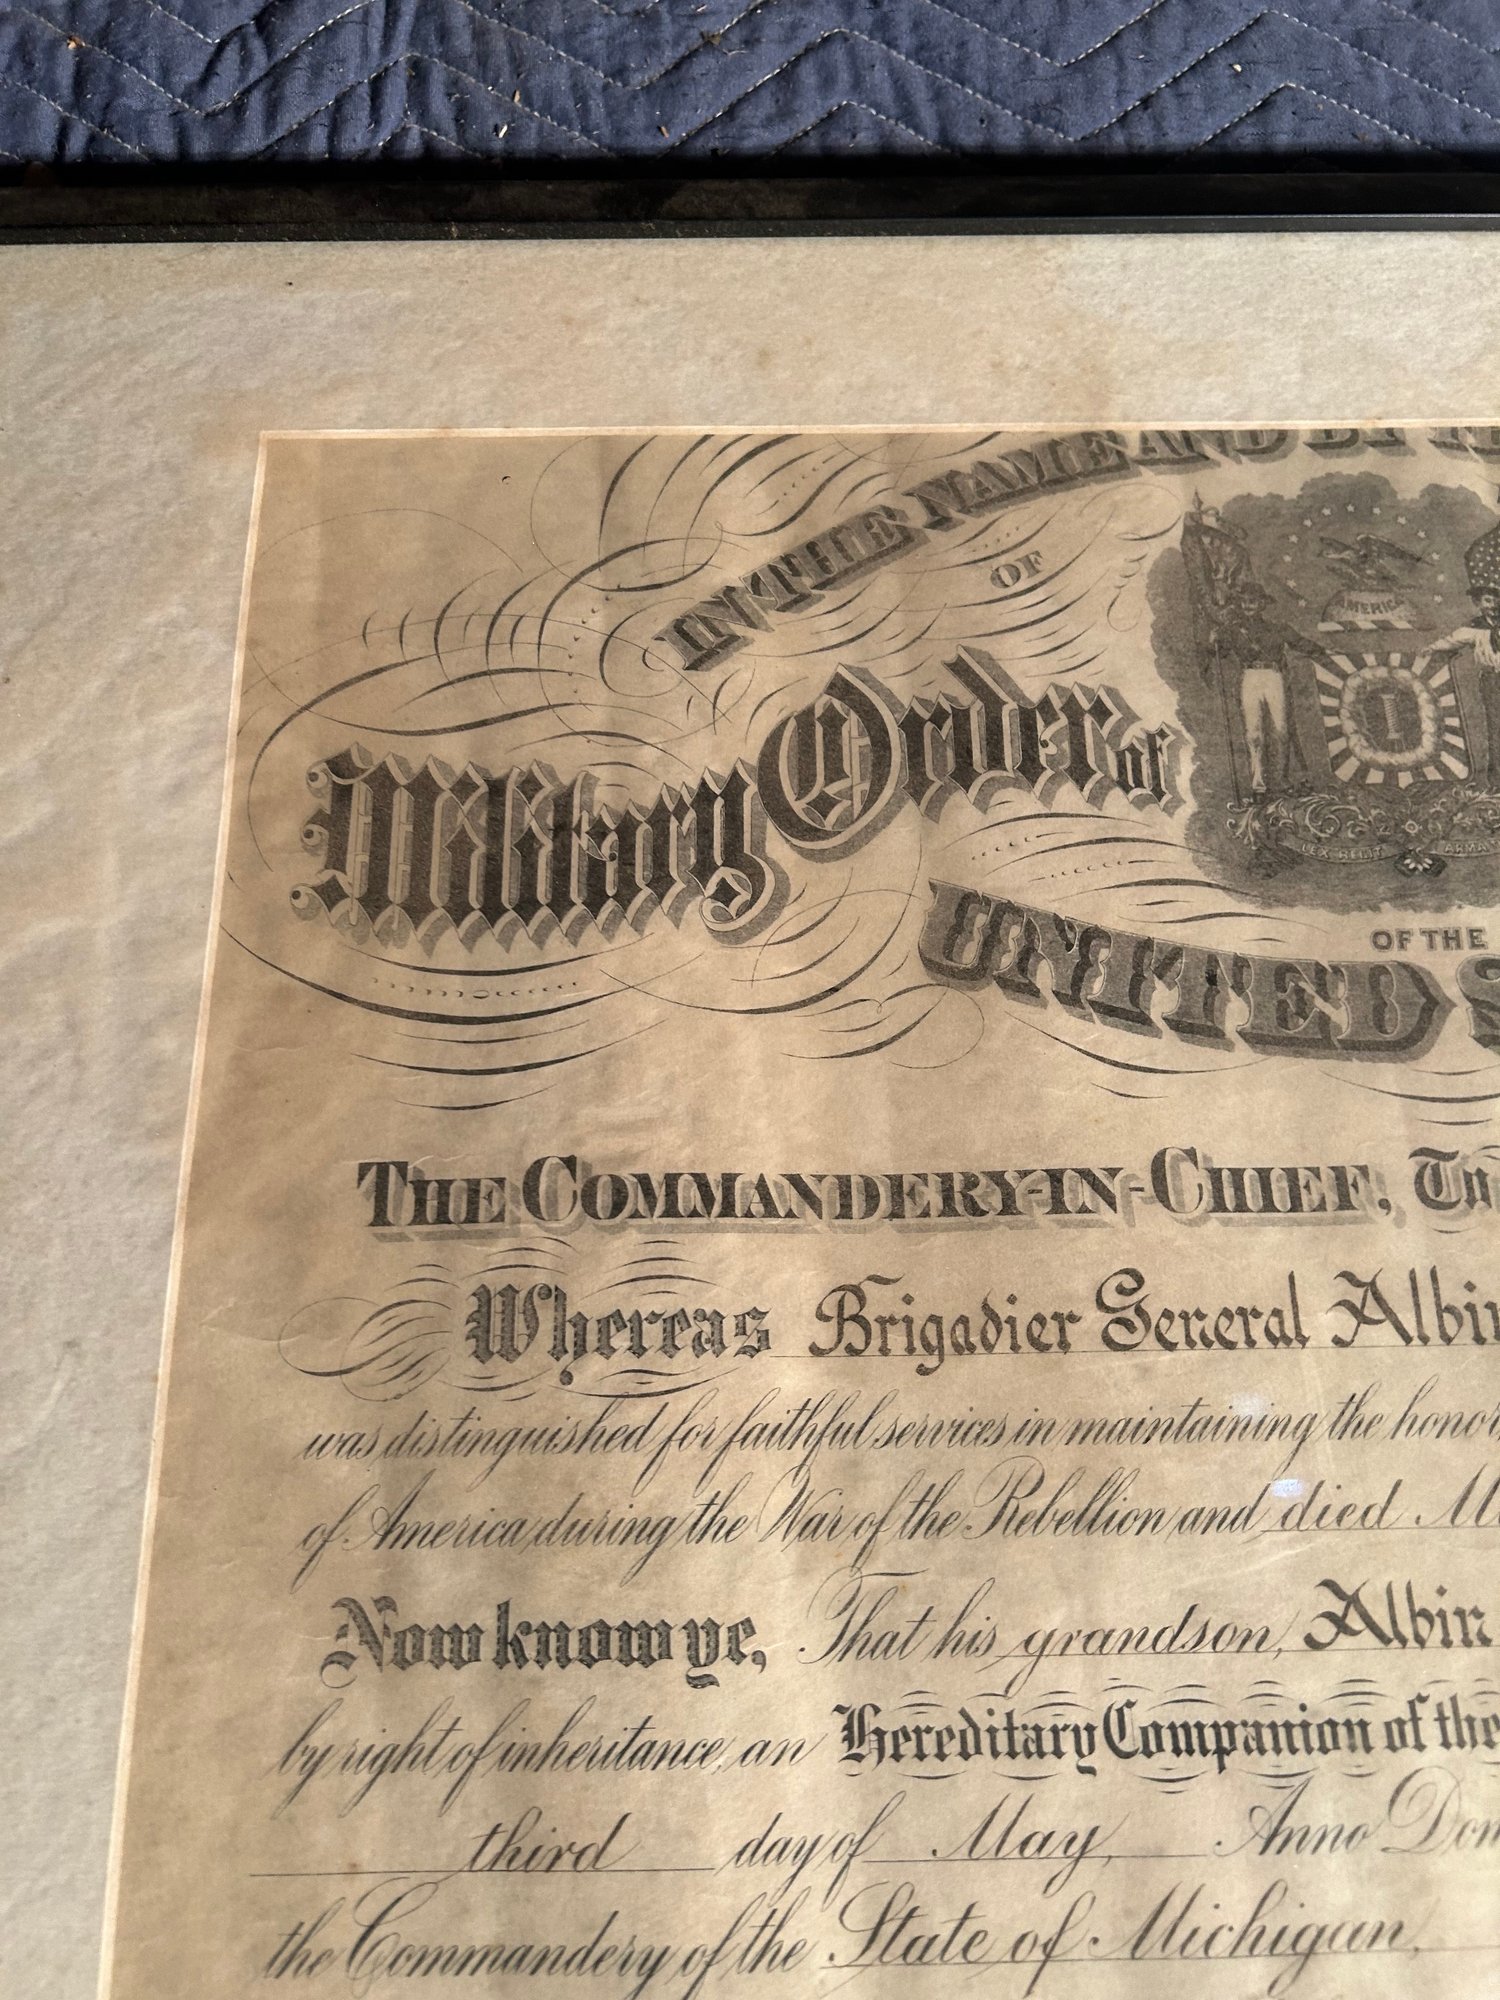 IN THE NAME AND BY
OF
AMERICA
Military Order of
1
LEX REGIT ARMA
OF THE
UNITED S
THE COMMANDERY-IN-CHIEF, To
Whereas Brigadier General Albin
was distinguished for faithful services in maintaining the honor
of America during the War of the Rebellion and died M
Now know ye, That his grandson, Albin
by right of inheritance, an Hereditary Companion of the
third day of May, Anno Dom
the Commandery of the State of Michigan,